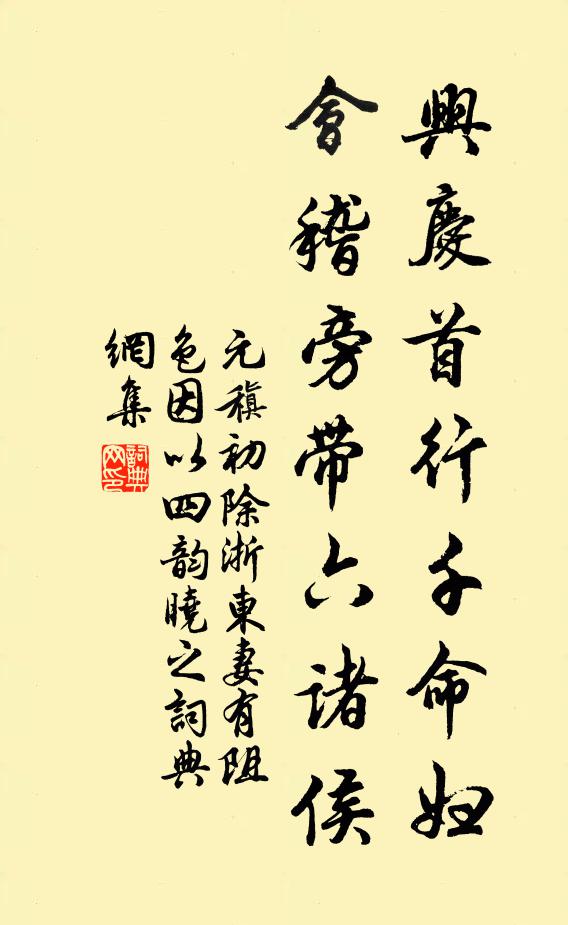 興慶首行千命妇
會稽旁带六诸侯
元稹初除浙東妻有阻
色因以四韵曉之詞典
網集
詞典
网印